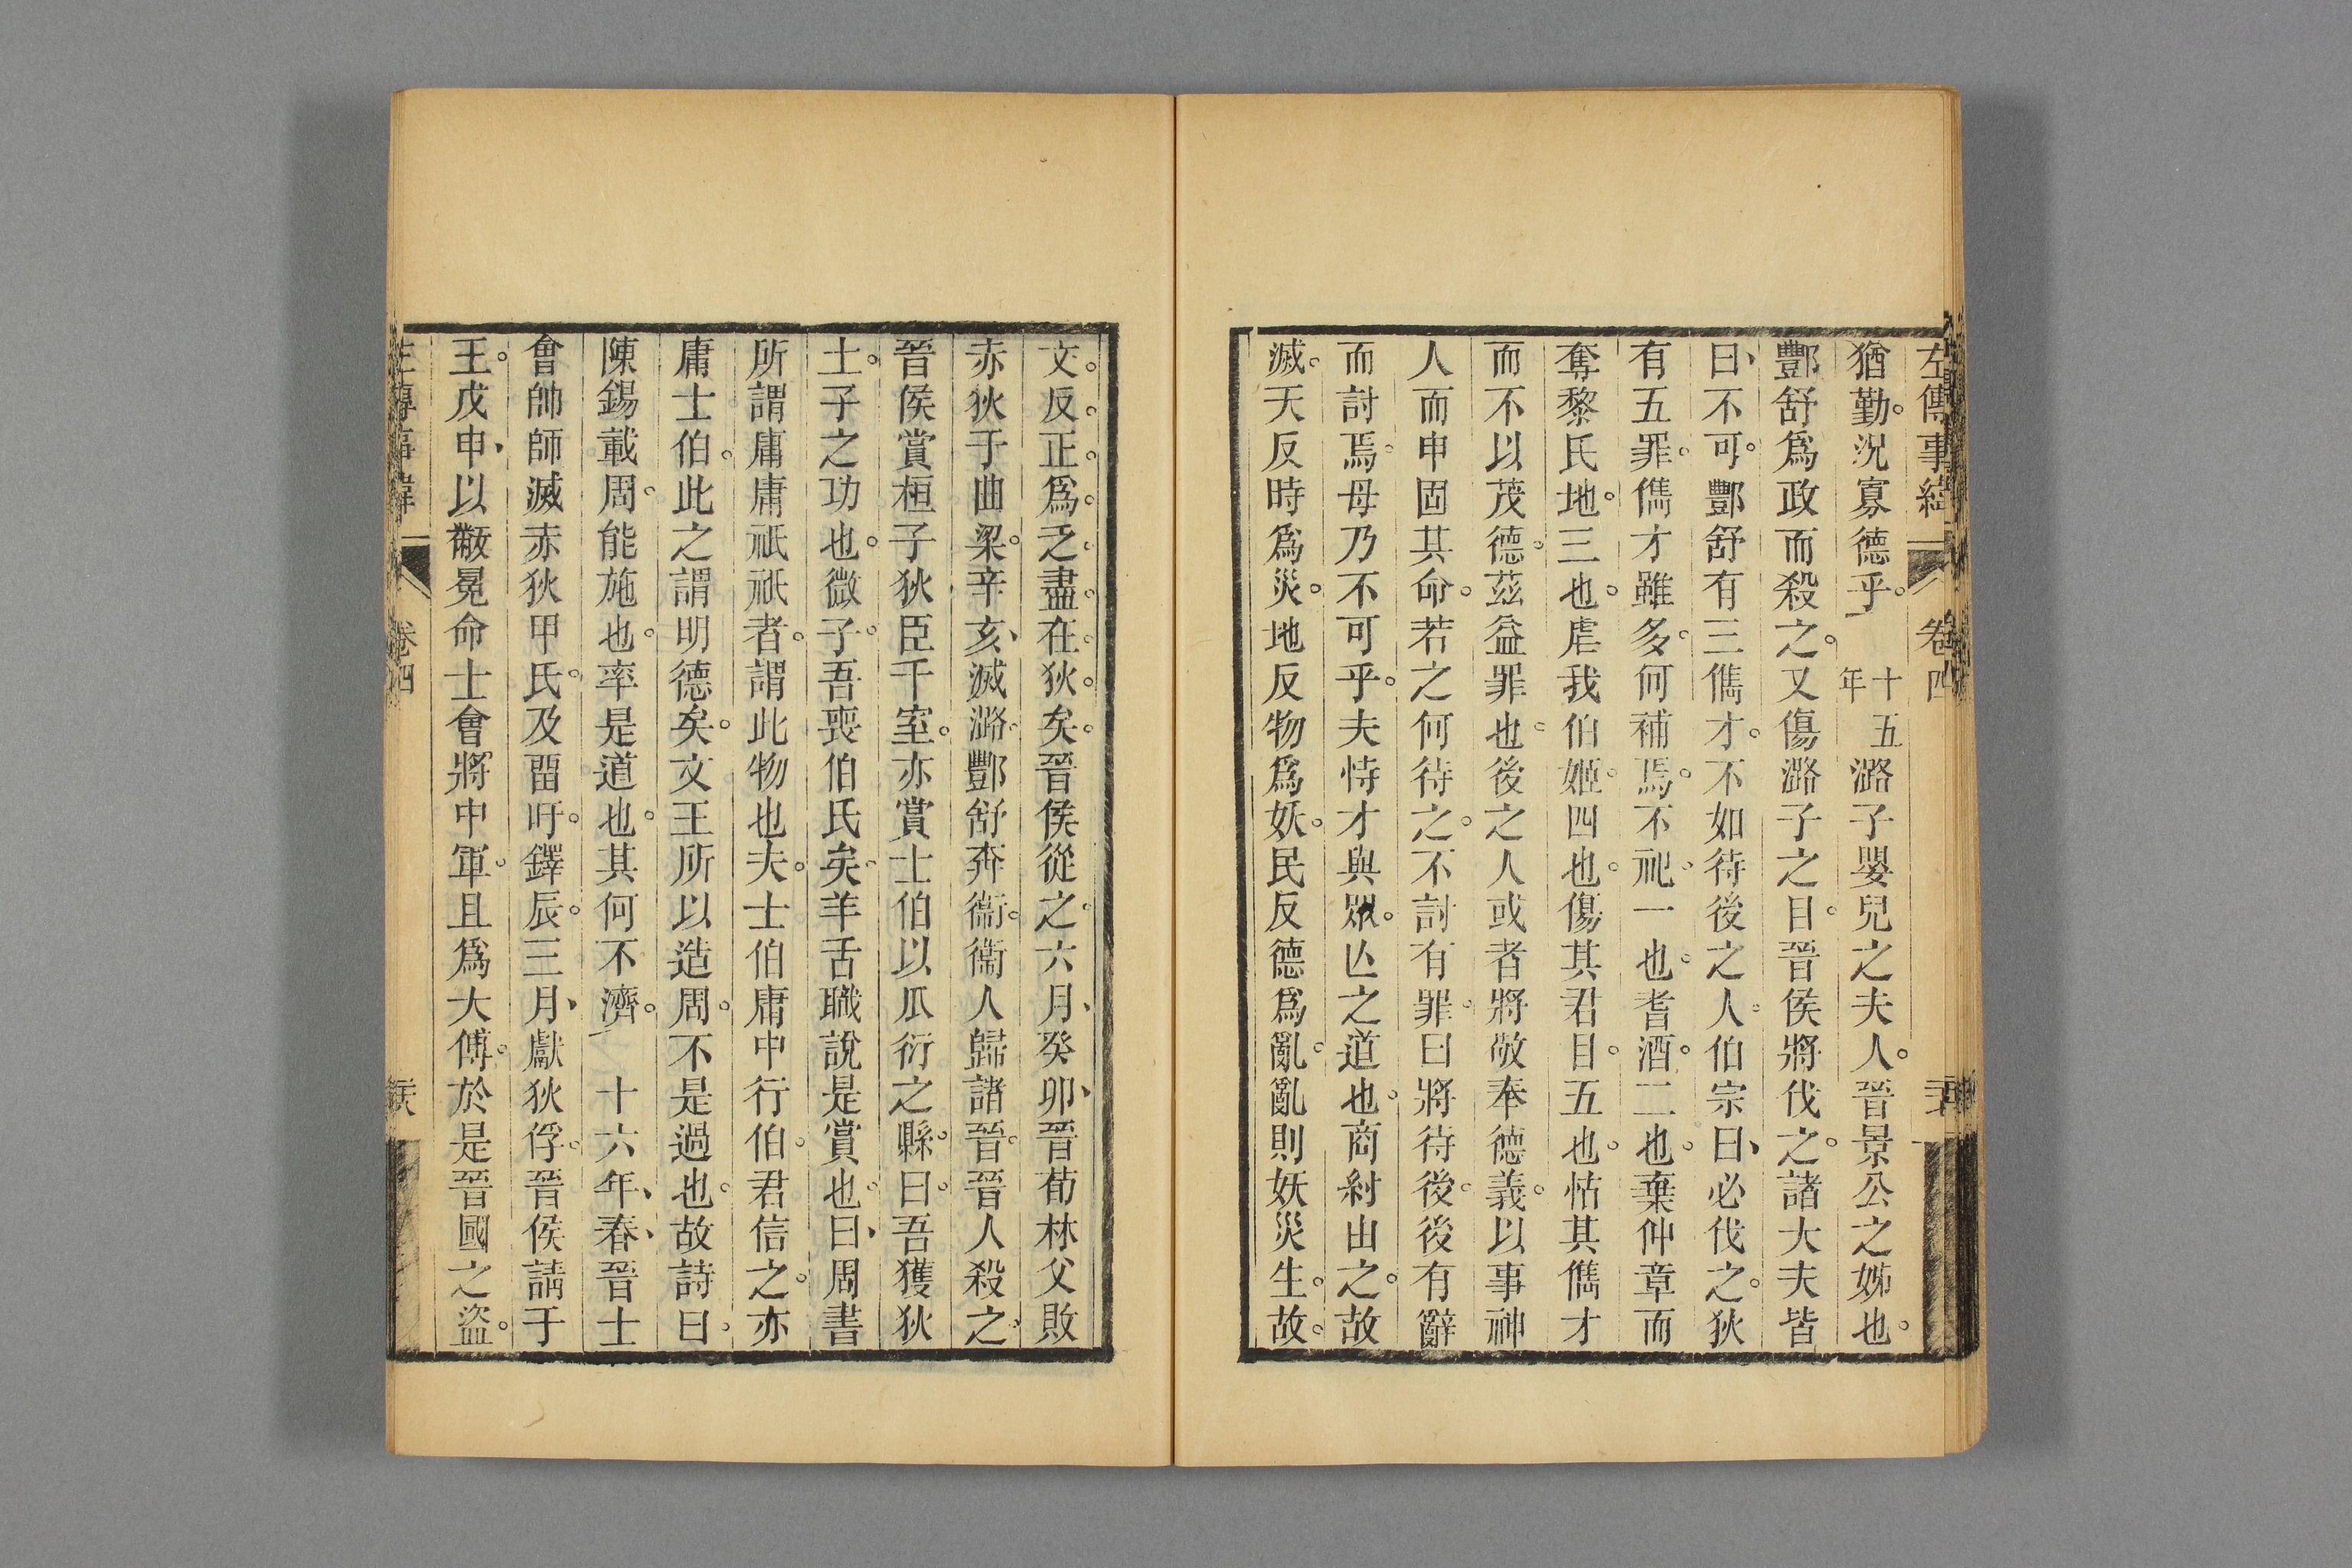 左傳事緯 卷四
猶勤。況寡德乎。十五年潞子嬰兒之夫人。晉景公之姊也。
酆舒爲政而殺之。又傷潞子之目。晉侯將伐之。諸大夫皆
曰、不可。酆舒有三儁才。不如待後之人。伯宗曰、必伐之。狄
有五罪。儁才雖多。何補焉。不祀。一也。耆酒。二也。棄仲章而
奪黎氏地。三也。虐我伯姬。四也。傷其君目。五也。怙其儁才
而不以茂德。茲益罪也。後之人或者將敬奉德義。以事神
人而申固其命。若之何待之。不討有罪。曰將待後。後有辭
而討焉。毋乃不可乎。夫恃才與眾。亾之道也。商紂由之。故
滅。天反時爲災。地反物爲妖。民反德爲亂。亂則妖災生。故。
文。反。正。爲。乏。盡。在。狄。矣。晉侯從之。六月、癸卯、晉荀林父敗
赤狄于曲梁。辛亥、滅潞。酆舒奔衞。衞人歸諸晉。晉人殺之。
晉侯賞桓子狄臣千室。亦賞士伯以瓜衍之縣。曰。吾獲狄
土。子之功也。微子。吾喪伯氏矣。羊舌職說是賞也。曰、周書
所謂庸庸祗祗者。謂此物也夫。士伯庸中行伯。君信之。亦
庸士伯。此之謂明德矣。文王所以造周。不是過也。故詩曰。
陳錫載周。能施也。率是道也。其何不濟。 十六年、春、晉士
會帥師滅赤狄甲氏。及畱吁。鐸辰。三月、獻狄俘。晉侯請于
王。戊申、以黻冕命士會將中軍。且爲大傅。於是晉國之盜。
左傳事緯 卷四